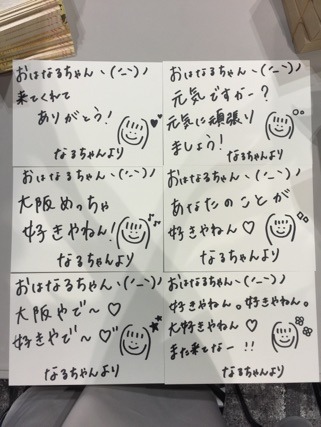 おはなるちゃんヽ(´ｰ`)ﾉ
来てくれて
ありがとう!
なるちゃんより
おはなるちゃんヽ(´ｰ`)ﾉ
元気ですかー?
元気に頑張り
ましょう!
なるちゃんより
おはなるちゃんヽ(´ｰ`)ﾉ
大阪めっちゃ
好きやねん!
なるちゃんより
おはなるちゃんヽ(´ｰ`)ﾉ
あなたのことが
好きやねん♡
なるちゃんより
おはなるちゃんヽ(´ｰ`)ﾉ
大阪やで〜♡
好きやで〜♡
なるちゃんより
おはなるちゃんヽ(´ｰ`)ﾉ
好きやねん。好きやねん。
大好きやねん♡
また来てなー!!
なるちゃんより